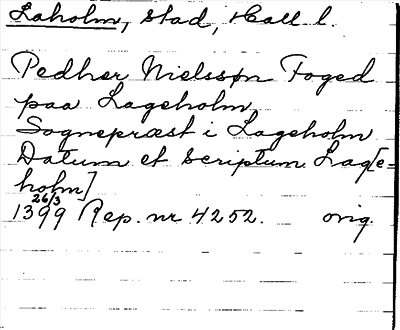 Laholm, stad, Hall l.
Pedher Nielssøn Foged
paa Lageholm
Sognepræst i Lageholm
Datum et scriptum Lag[e-
holm]
26/3
1399 Rep. nr 4252. orig.